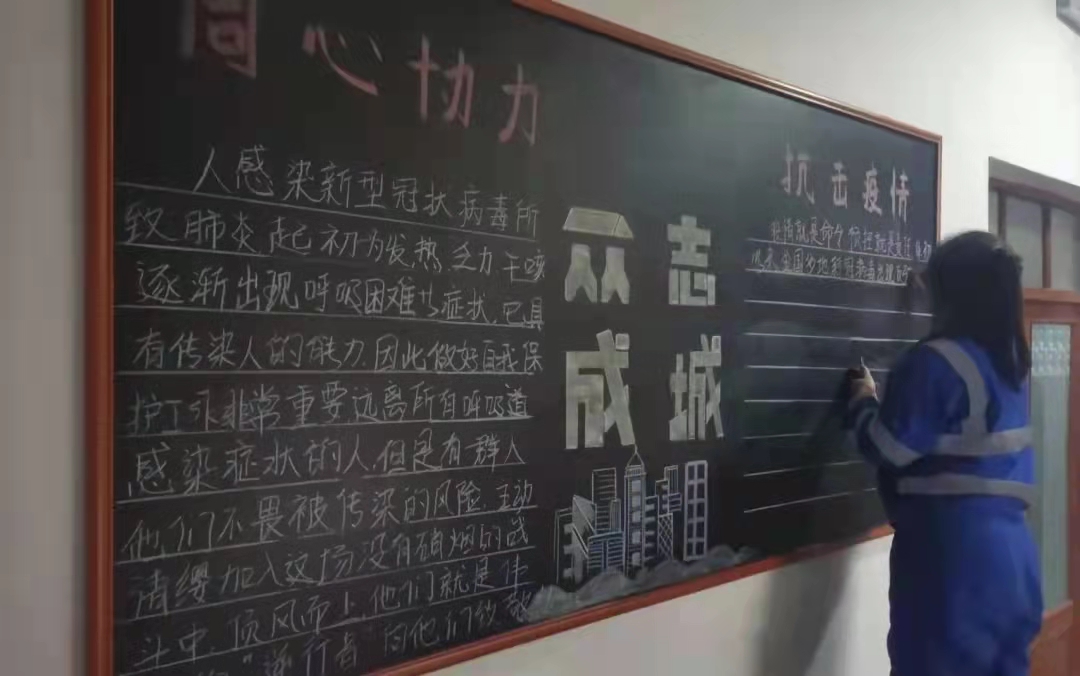 同心协力
人感染新型冠状病毒所
致肺炎起初为发热乏力干咳
逐渐出现呼吸困难等症状,它具
有传染人的能力,因此做好自我保
护工作非常重要远离所有呼吸道
感染症状的人,但是有群人
他们不畏被传染的风险,主动
请缨加入这场没有硝烟的战
斗中,顶风而上,他们就是伟
"逆行者"向他们致敬
众志
成城
抗击疫情
疫情就是命令 防控就是责任
以来,全国多地